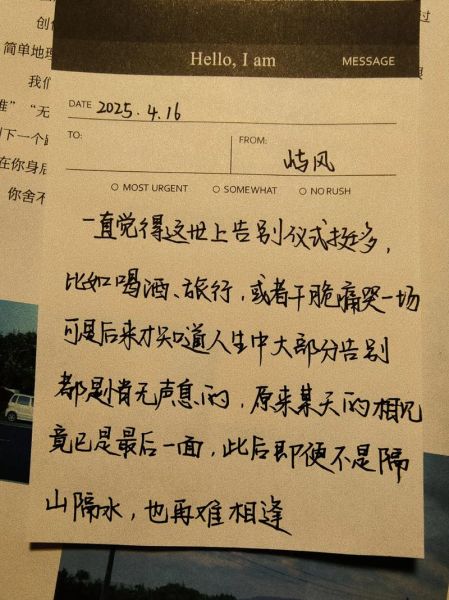 创
过
简单地理
我们
准”“无
下一个
在你身后
你舍不
Hello, I am
MESSAGE
DATE 2025.4.16
TO:
FROM: 屿风
O MOST URGENT O SOMEWHAT O NO RUSH
一直觉得这世上告别仪式挺多，
比如喝酒、旅行，或者干脆痛哭一场
可是后来才知道人生中大部分告别
都是悄无声息的，原来某天的相见
竟已是最后一面，此后即便不是隔
山隔水，也再难相逢